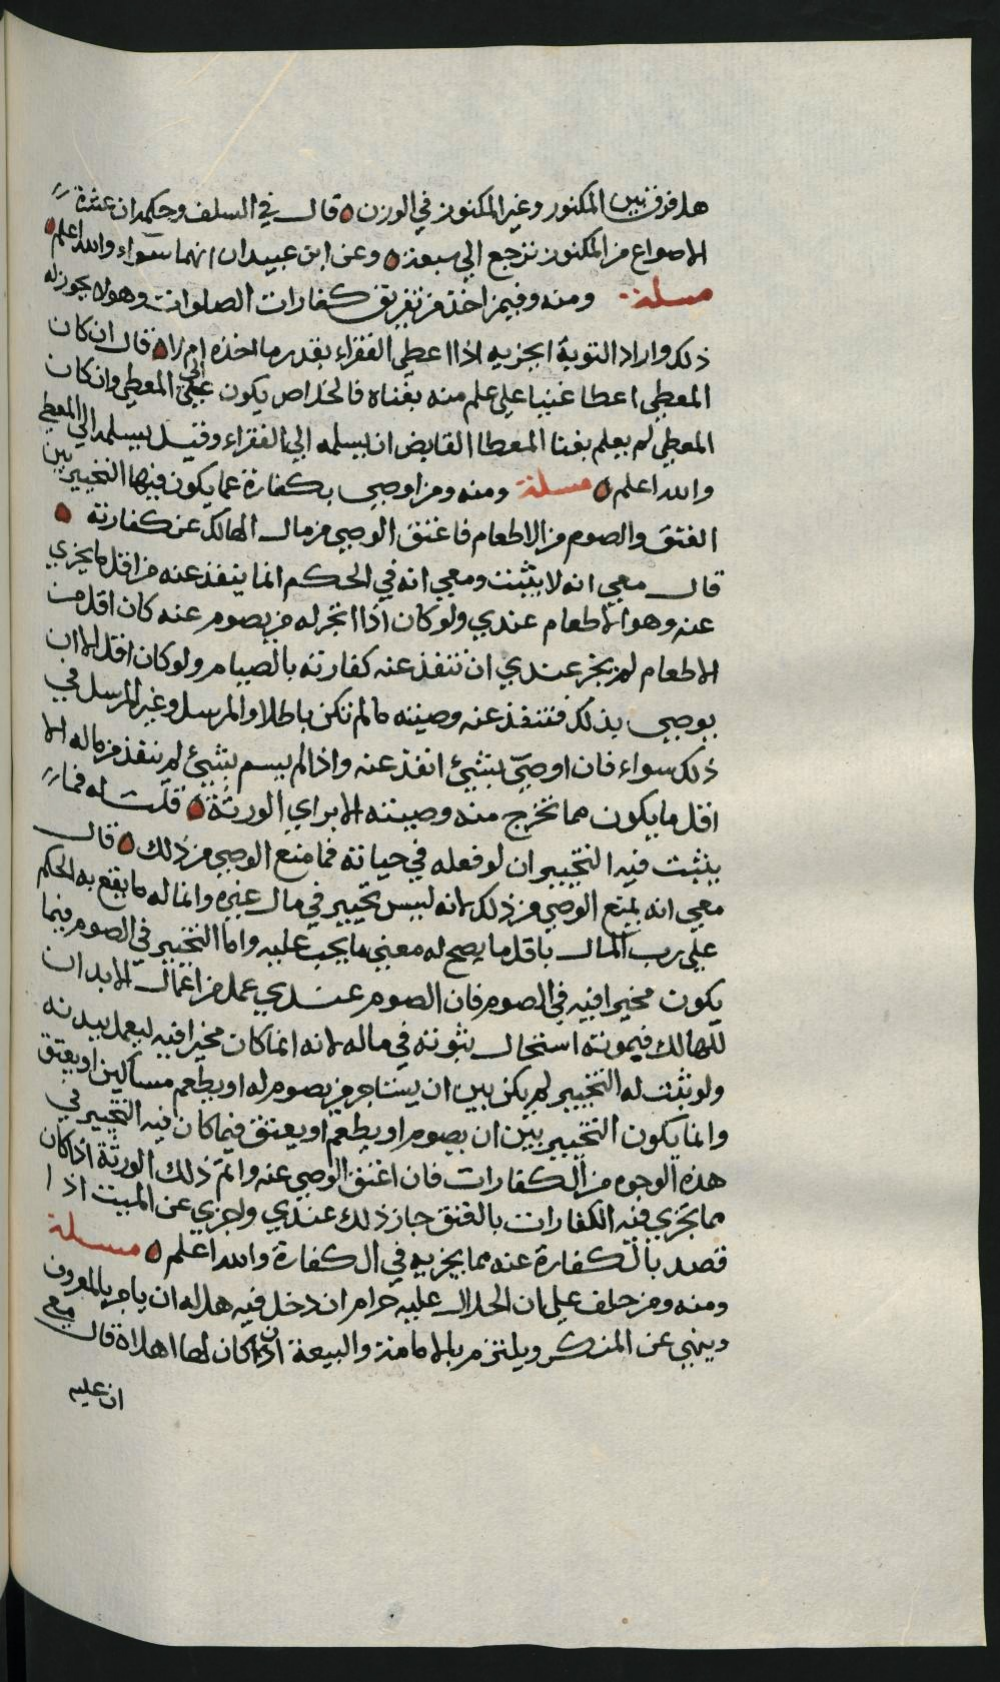 هل فرق بين المكنوز وغير المكنوز في الوزن قال في السلف وحكمه ان عشرة
الاصواع من المكنوز ترجع الى سبعة وعن ابن عبيدان انهما سواء والله اعلم
مسئلة ومنه وفيمن اخذ من تفريق كفارات الصلوات وهو لا يجوز له
ذلك واراد التوبة ايجزيه اذا اعطى الفقراء بقدر ما اخذه ام لا قال ان كان
المعطي اعطا غنيا على علم منه بغناه فالخلاص يكون الى المعطي وان كان
المعطي لم يعلم بغنا المعطا القابض ان يسلمه الى الفقراء وقيل يسلمه الى المعطي
والله اعلم مسئلة ومنه ومن اوصى بكفارة عما يكون فيها التخيير بين
العتق والصوم من الاطعام فاعتق الوصي من مال الهالك عن كفارته
قال معي انه لا يثبت ومعي انه في الحكم انما ينفذ عنه من اقل ما يجزي
عنه وهو الاطعام عندي ولو كان اذا اتجر له من يصوم عنه كان اقل من
الاطعام لم يجز عندي ان تنفذ عنه كفارته بالصيام ولو كان اقل الا ان
يوصي بذلك فتنفذ عنه وصيته ما لم تكن باطلا والمرسل وغير المرسل في
ذلك سواء فان اوصى بشيئ انفذ عنه واذا لم يسم بشيئ لم ينفذ من ماله الا
اقل ما يكون مما تخرج منه وصيته الا براي الورثة قلت له فما
يثبت فيه التخيير ان لو فعله في حياته فما منع الوصي من ذلك قال
معي انه يمنع الوصي من ذلك لانه ليس تخيير في مال غيره وانما له ما يقع به الحكم
على رب المال باقل ما يصح له معنى ما يجب عليه واما التخيير في الصوم فيما
يكون مخيرا فيه في الصوم فان الصوم عندي عمل من اعمال الابدان
للهالك فيموته استحال ثبوته في ماله لانه انما كان مخيرا فيه ليعمل ببدنه
ولو ثبت له التخيير لم يكن بين ان يستاجر من يصوم له او يطعم مساكين او يعتق
وانما يكون التخيير بين ان يصوم او يطعم او يعتق فيما كان فيه التخيير في
هذه الوجوه من الكفارات فان اعتق الوصي عنه واتم ذلك الورثة اذا كان
مما تجزي فيه الكفارات بالعتق جاز ذلك عندي واجزي عن الميت اذا
قصد بالكفارة عنه مما يجزيه في الكفارة والله اعلم مسئلة
ومنه ومن حلف على ان الحلال عليه حرام ان دخل فيه هل له ان يامر بالمعروف
وينهي عن المنكر ويلتزم بالامامة والبيعة اذا كان لها اهلا قال معي
ان عليه